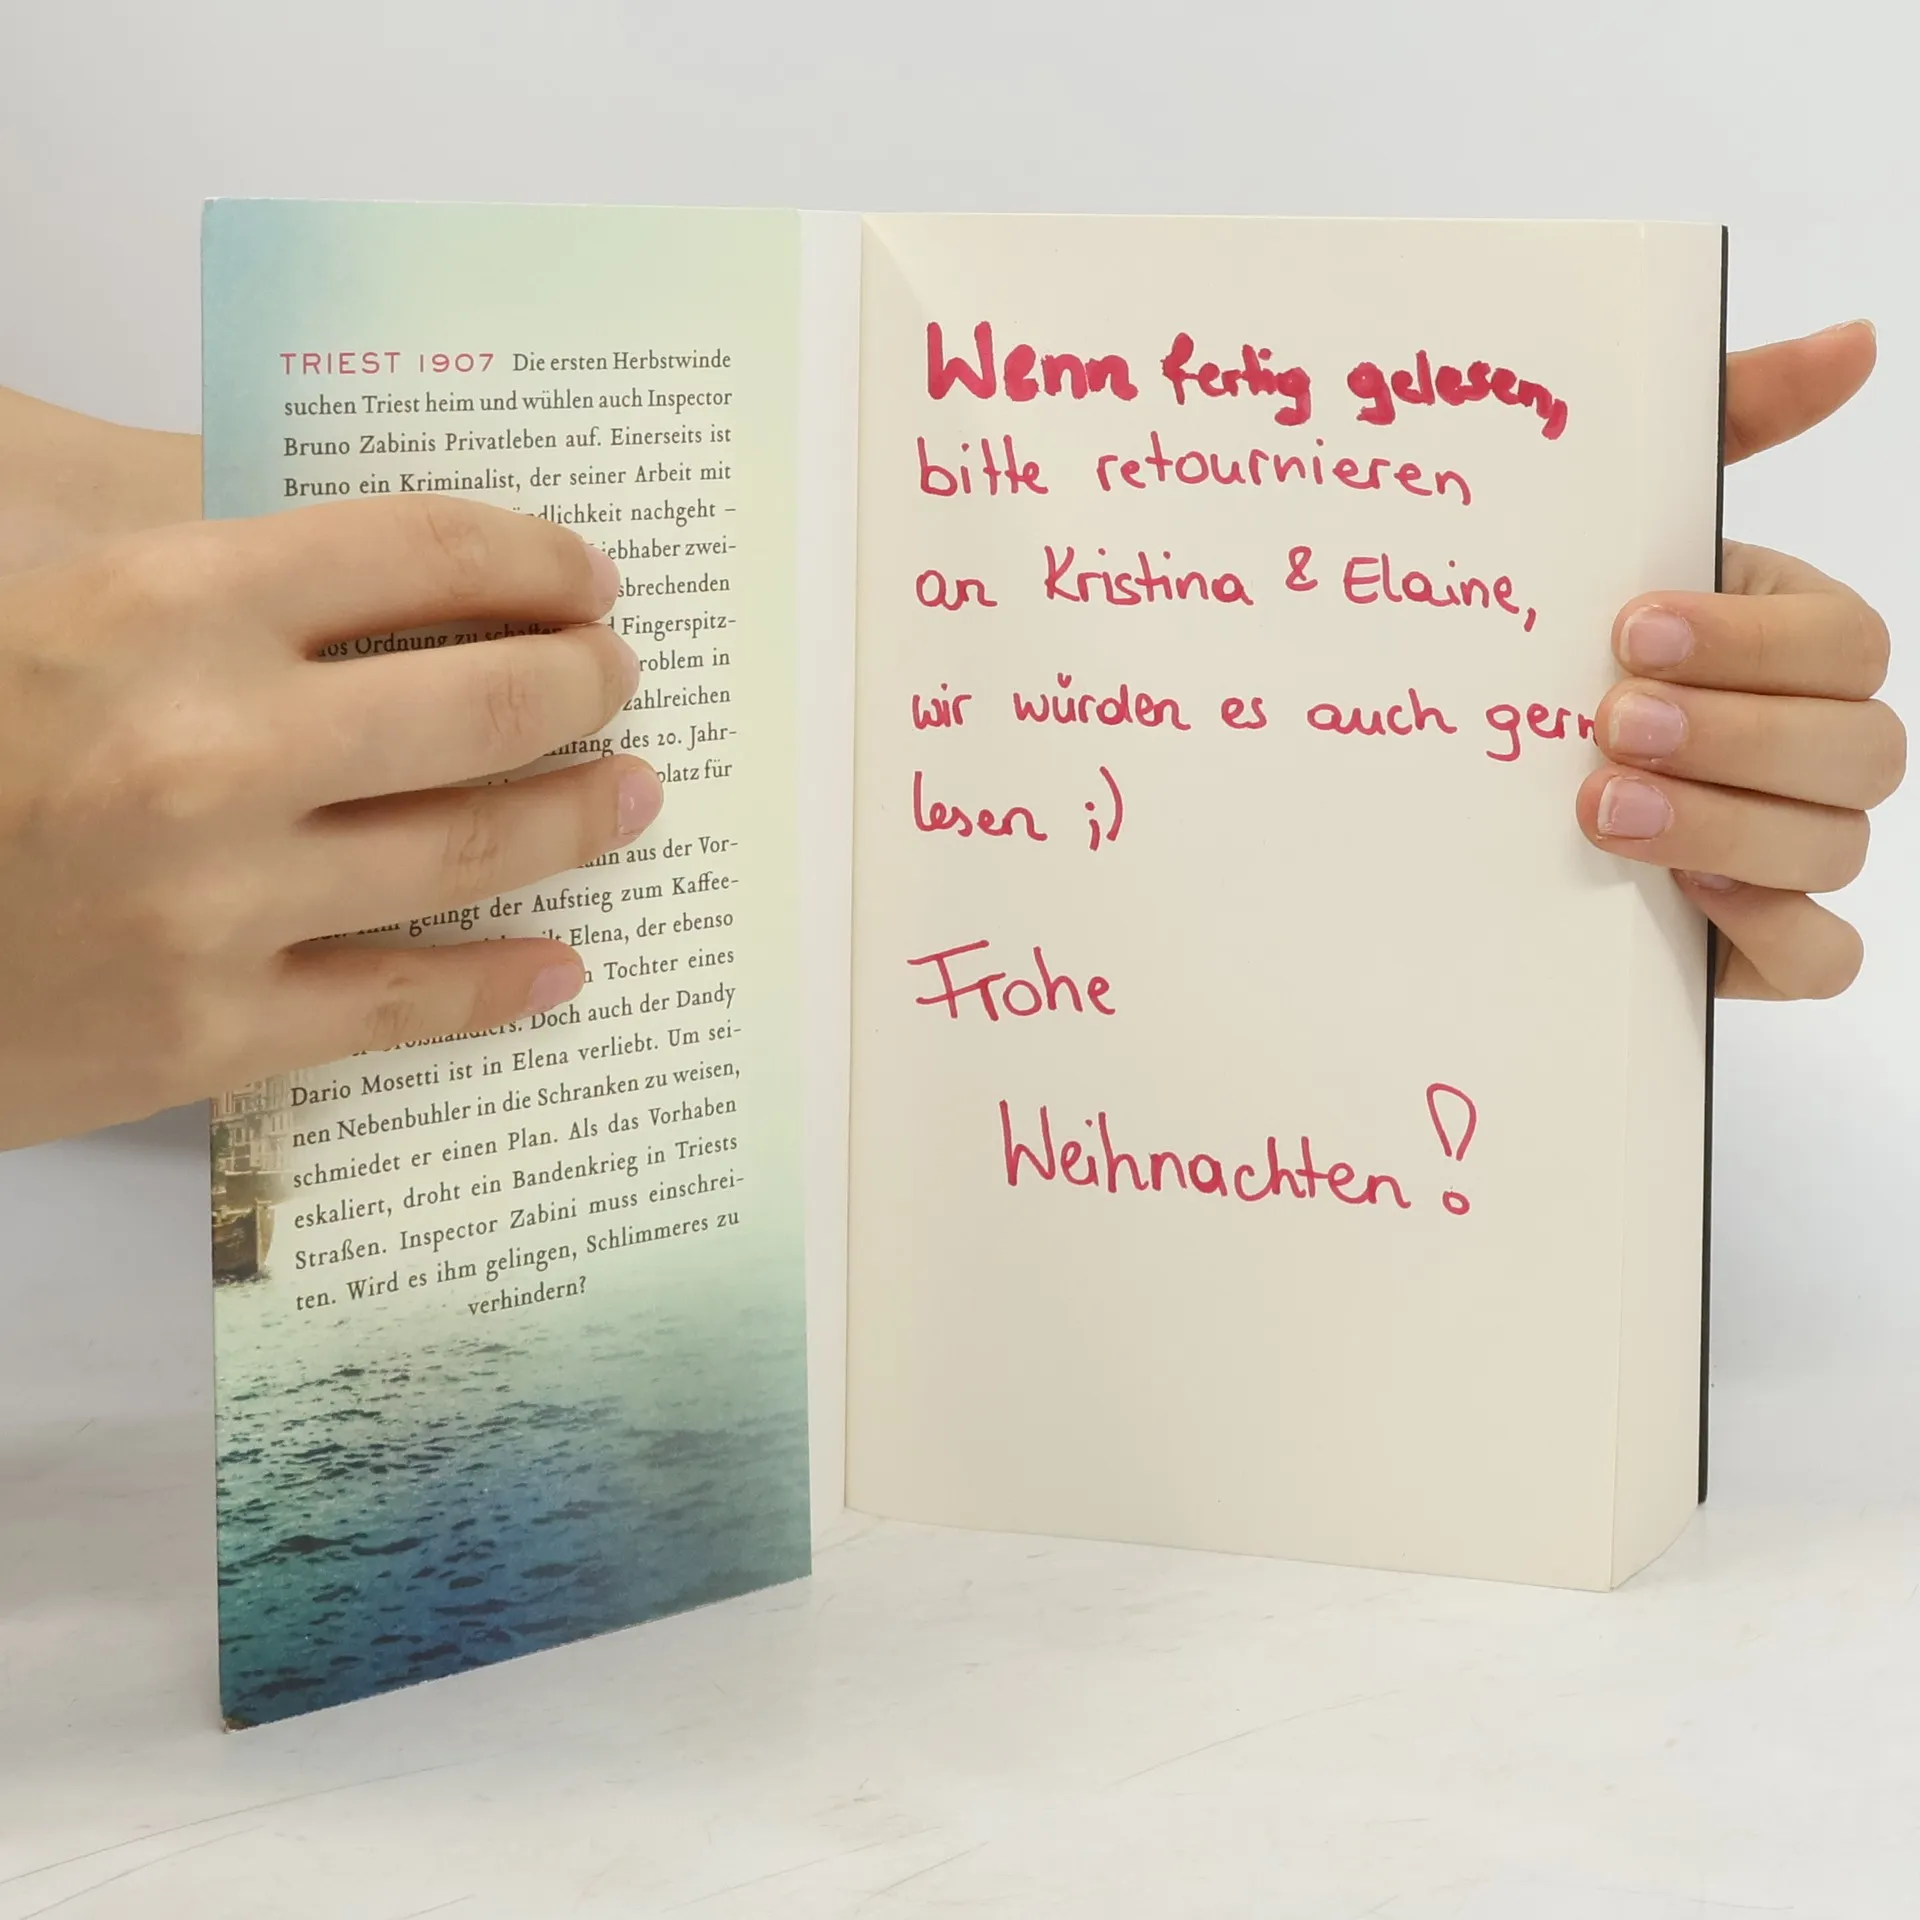 TRIEST 1907 Die ersten Herbstwinde
suchen Triest heim und wühlen auch Inspector
Bruno Zabinis Privatleben auf. Einerseits ist
Bruno ein Kriminalist, der seiner Arbeit mit
nachgeht –
zwei-
Ordnung zu
Fingerspitz-
in
zahlreichen
des 20. Jahr-
für
aus der Vor-
gelingt der Aufstieg zum Kaffee-
Elena, der ebenso
Tochter eines
Doch auch der Dandy
Dario Mosetti ist in Elena verliebt. Um sei-
nen Nebenbuhler in die Schranken zu weisen,
schmiedet er einen Plan. Als das Vorhaben
eskaliert, droht ein Bandenkrieg in Triests
Straßen. Inspector Zabini muss einschrei-
ten. Wird es ihm gelingen, Schlimmeres zu
verhindern?
Wenn fertig gelesen,
bitte retournieren
an Kristina & Elaine,
wir würden es auch gern
lesen ;)
Frohe
Weihnachten!